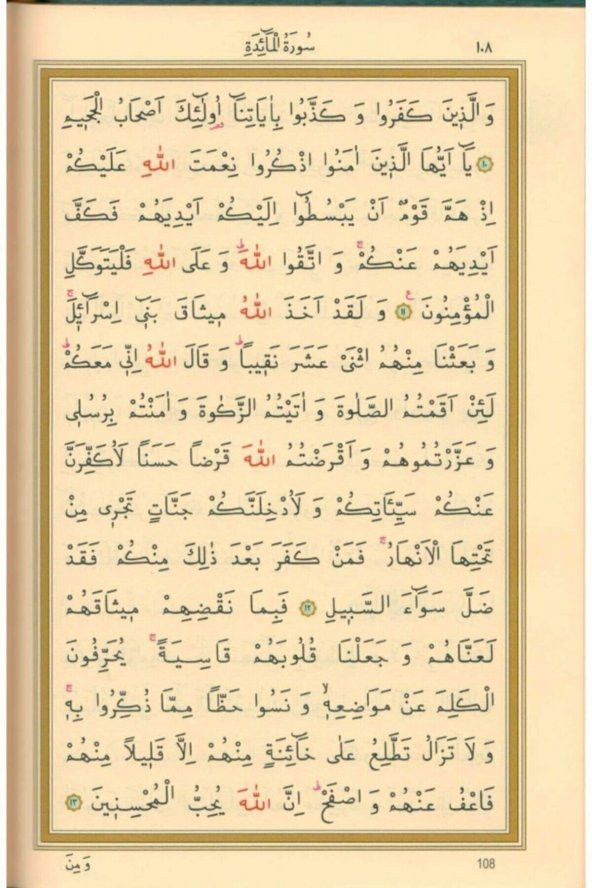 سُورَةُ الْمَٓائِدَةِ ١٠٨
وَ الَّذ۪ينَ كَفَرُوا وَ كَذَّبُوا بِاٰيَاتِنَٓا اُولٰٓئِكَ اَصْحَابُ الْجَح۪يمِ
﴿١٠﴾ يَٓا اَيُّهَا الَّذ۪ينَ اٰمَنُوا اذْكُرُوا نِعْمَتَ اللّٰهِ عَلَيْكُمْ
اِذْ هَمَّ قَوْمٌ اَنْ يَبْسُطُٓوا اِلَيْكُمْ اَيْدِيَهُمْ فَكَفَّ
اَيْدِيَهُمْ عَنْكُمْۚ وَ اتَّقُوا اللّٰهَۜ وَ عَلَى اللّٰهِ فَلْيَتَوَكَّلِ
الْمُؤْمِنُونَ ﴿١١﴾ وَ لَقَدْ اَخَذَ اللّٰهُ م۪يثَاقَ بَن۪ٓي اِسْرَٓائ۪لَۚ
وَ بَعَثْنَا مِنْهُمُ اثْنَيْ عَشَرَ نَق۪يباًۜ وَ قَالَ اللّٰهُ اِنّ۪ي مَعَكُمْۜ
لَئِنْ اَقَمْتُمُ الصَّلٰوةَ وَ اٰتَيْتُمُ الزَّكٰوةَ وَ اٰمَنْتُمْ بِرُسُل۪ي
وَ عَزَّرْتُمُوهُمْ وَ اَقْرَضْتُمُ اللّٰهَ قَرْضاً حَسَناً لَاُكَفِّرَنَّ
عَنْكُمْ سَيِّـَٔاتِكُمْ وَ لَاُدْخِلَنَّكُمْ جَنَّاتٍ تَجْر۪ي مِنْ
تَحْتِهَا الْاَنْهَارُۚ فَمَنْ كَفَرَ بَعْدَ ذٰلِكَ مِنْكُمْ فَقَدْ
ضَلَّ سَوَٓاءَ السَّب۪يلِ ﴿١٢﴾ فَبِمَا نَقْضِهِمْ م۪يثَاقَهُمْ
لَعَنَّاهُمْ وَ جَعَلْنَا قُلُوبَهُمْ قَاسِيَةًۚ يُحَرِّفُونَ
الْكَلِمَ عَنْ مَوَاضِعِه۪ۙ وَ نَسُوا حَظّاً مِمَّا ذُكِّرُوا بِه۪ۚ
وَ لَا تَزَالُ تَطَّلِعُ عَلٰى خَٓائِنَةٍ مِنْهُمْ اِلَّا قَل۪يلاً مِنْهُمْ
فَاعْفُ عَنْهُمْ وَ اصْفَحْۜ اِنَّ اللّٰهَ يُحِبُّ الْمُحْسِن۪ينَ ﴿١٣﴾
وَ مِنَ 108